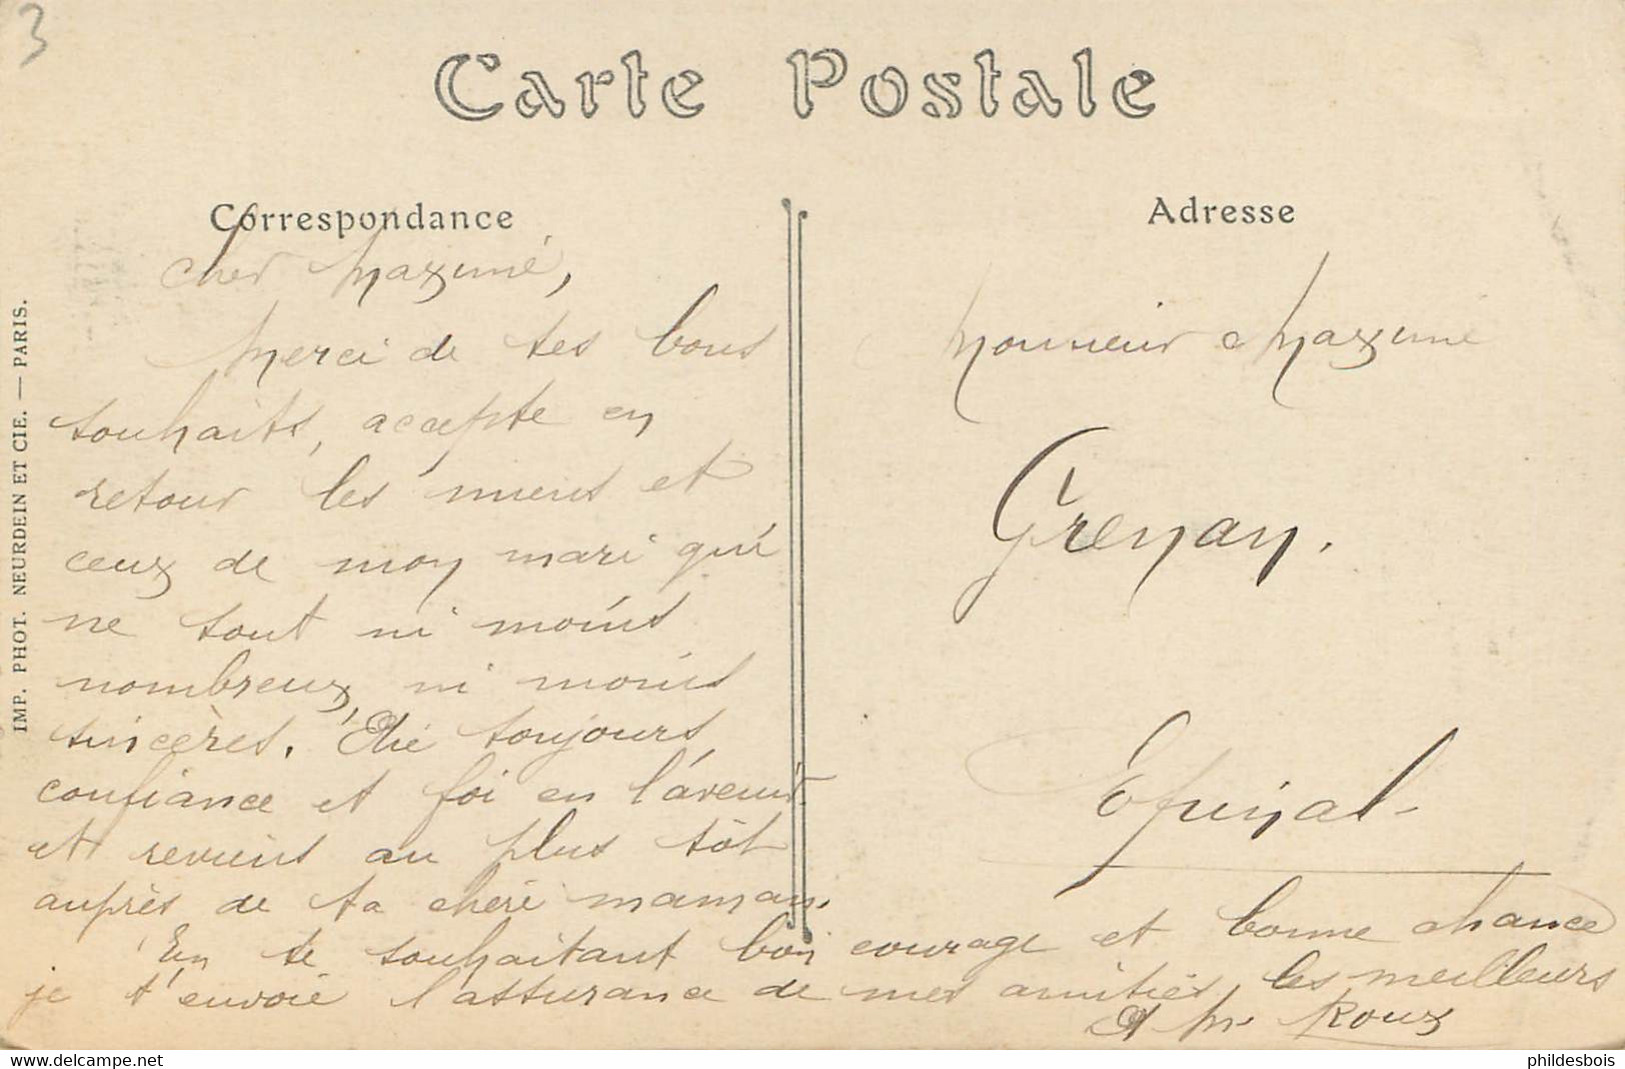 3
Carte Postale
Correspondance
Cher Maxime,
Merci de tes bons
souhaits, accepte en
retour les miens et
ceux de mon mari qui
ne sont ni moins
nombreux, ni moins
sincères. Aie toujours
confiance et foi en l'avenir
et reviens au plus tôt
auprès de ta chère maman.
En te souhaitant bon courage et bonne chance
je t'envoie l'assurance de mes amitiés les meilleurs
M. Roux
Adresse
Monsieur Maxime
Grenan.
Epinal
IMP. PHOT. NEURDEIN ET CIE. — PARIS.
Ma-Shops.com est votre boutique
phildesbois